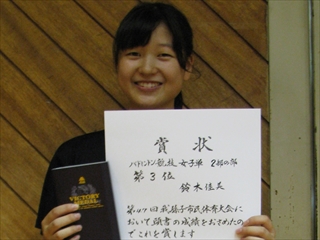 賞状
バドミントン競技 女子単 2部の部
第3位
鈴木佳美
第47回我孫子市民体育大会に
おいて頭書の成績をおさめたの
でこれを賞します
VICTORY
MEDAL